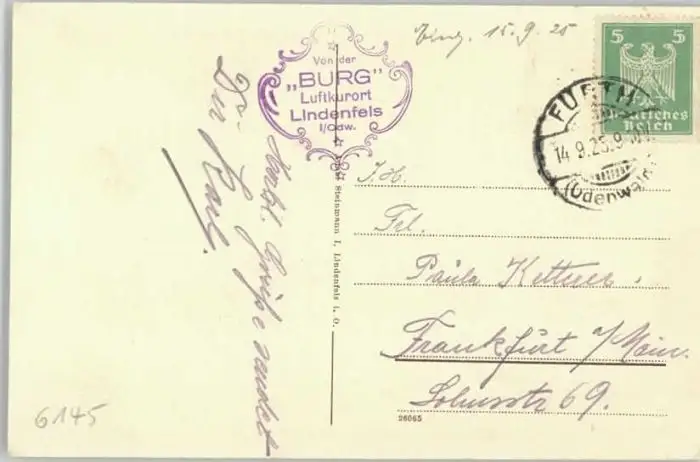 Eing. 15.9.25
Von der
„BURG"
Luftkurort
Lindenfels
i/Odw.
5 5
Deutsches
Reich
FÜRTH
14.9.25.9-10V.
(Odenwald)
Herzl. Grüße sendet
Dir
Karl.
Steinmann I, Lindenfels i. O.
Frl.
Paula Kettner
Frankfurt a/Main.
Solmsstr 69.
26065
6145